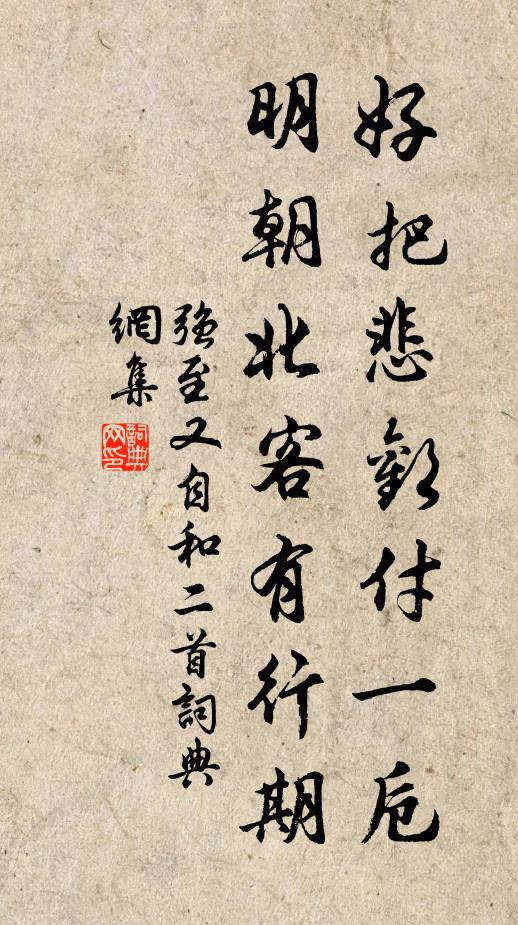 好把悲歡付一卮
明朝北客有行期
強至又自和二首詞典
網集
詞典
网印